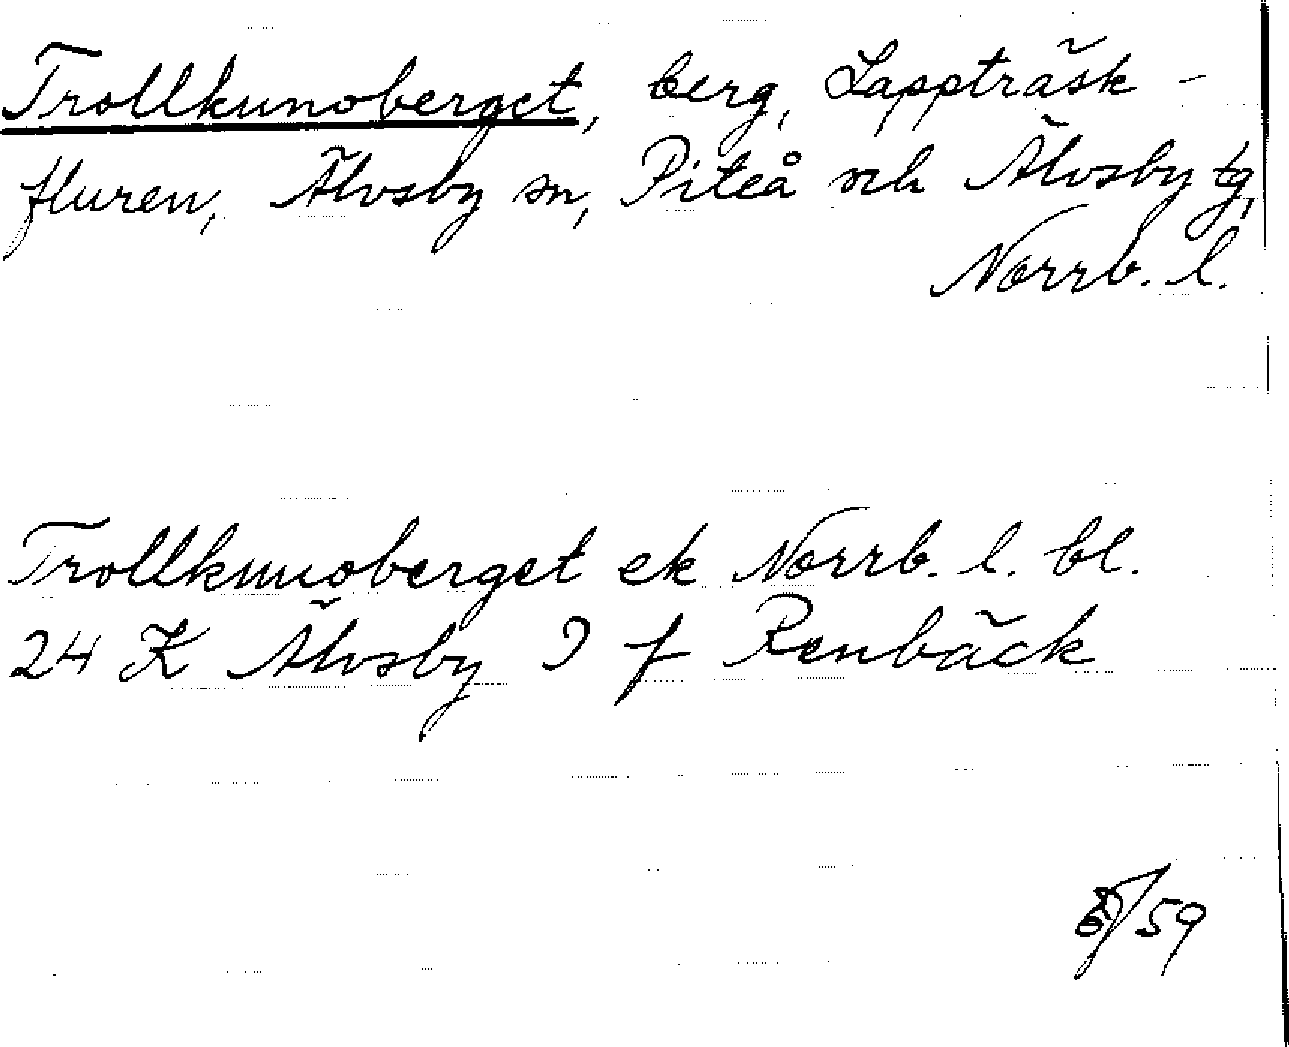 Trollkunoberget, berg, Lappträsk-
fluren, Älvsby sn, Piteå och Älvsby tg,
Norrb. l.
Trollkunoberget ek Norrb. l. bl.
24 K Älvsby I f Renbäck
/59